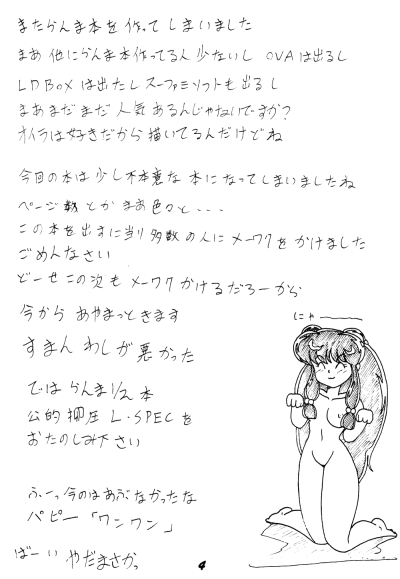 またらんま本を作ってしまいました
まあ他にらんま本作ってる人少ないし OVAは出るし
LDBOXは出たしスーファミソフトも出るし
まあまだまだ人気あるんじゃないですか?
オイラは好きだから描いてるんだけどね
今回の本は少し不本意な本になってしまいましたね
ページ数とかまあ色々と・・・
この本を出すに当り多数の人にメーワクをかけました
ごめんなさい
どーせこの次もメーワクかけるだろーから
今からあやまっときます
すまんわしが悪かった
ではらんま1/2本
公的抑圧 L・SPECを
おたのしみ下さい
ふーっ今のはあぶなかったな
パピー「ワンワン」
ばーい やだまさかっ
にゃ――
4